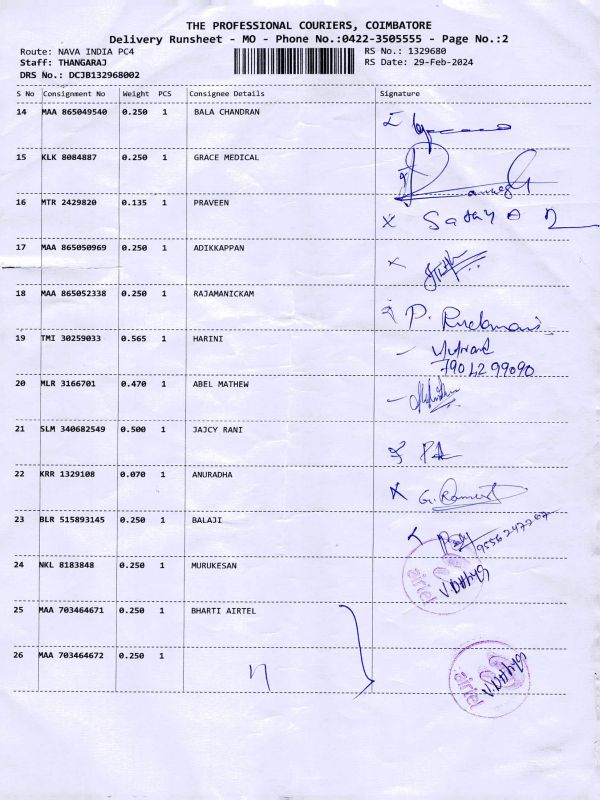 THE PROFESSIONAL COURIERS, COIMBATORE
Delivery Runsheet - MO - Phone No.:0422-3505555 - Page No.:2
Route: NAVA INDIA PC4 RS No.: 1329680
Staff: THANGARAJ RS Date: 29-Feb-2024
DRS No.: DCJB132968002
S No Consignment No Weight PCS Consignee Details Signature
14 MAA 865049540 0.250 1 BALA CHANDRAN
15 KLK 8084887 0.250 1 GRACE MEDICAL
16 MTR 2429820 0.135 1 PRAVEEN
17 MAA 865050969 0.250 1 ADIKKAPPAN
18 MAA 865052338 0.250 1 RAJAMANICKAM
P. Rukmani
19 TMI 30259033 0.565 1 HARINI
79012 99090
20 MLR 3166701 0.470 1 ABEL MATHEW
21 SLM 340682549 0.500 1 JAJCY RANI
22 KRR 1329108 0.070 1 ANURADHA
23 BLR 515893145 0.250 1 BALAJI
9556247267
24 NKL 8183848 0.250 1 MURUKESAN
airtel
25 MAA 703464671 0.250 1 BHARTI AIRTEL
26 MAA 703464672 0.250 1
airtel